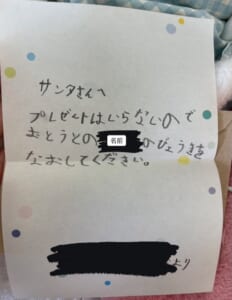 サンタさんへ
プレゼントはいらないので
おとうとの 名前 のびょうきを
なおしてください。
より